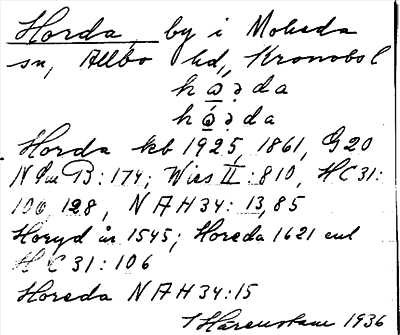 Horda, by i Moheda
sn, Allbo hd, Kronobsl
Horda kb 1925, 1861, G20
N Sm B: 174; Wies II: 810, HC 31:
106, 128, NAH 34: 13, 85
Horyd år 1545; Horeda 1621 enl
HC 31: 106
Horeda NAH 34: 15
1936